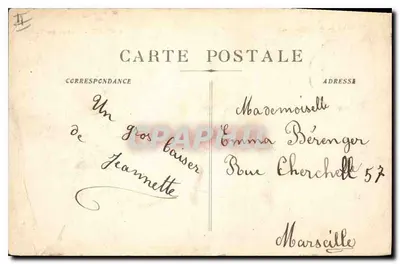 CARTE POSTALE
CORRESPONDANCE
ADRESSE
Un gros baiser
de Jeannette
Mademoiselle
Emma Bérenger
Rue Cherchell 57
Marseille